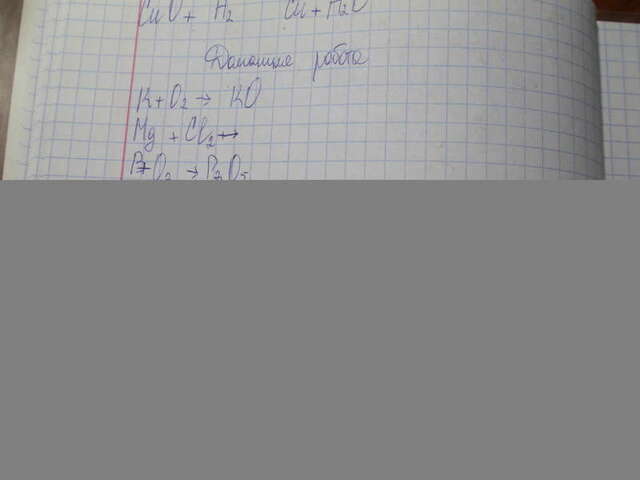 CuO + H2 Cu + H2O
Домашня робота
K + O2 → KO
Mg + Cl2 →
P + O2 → P2O5